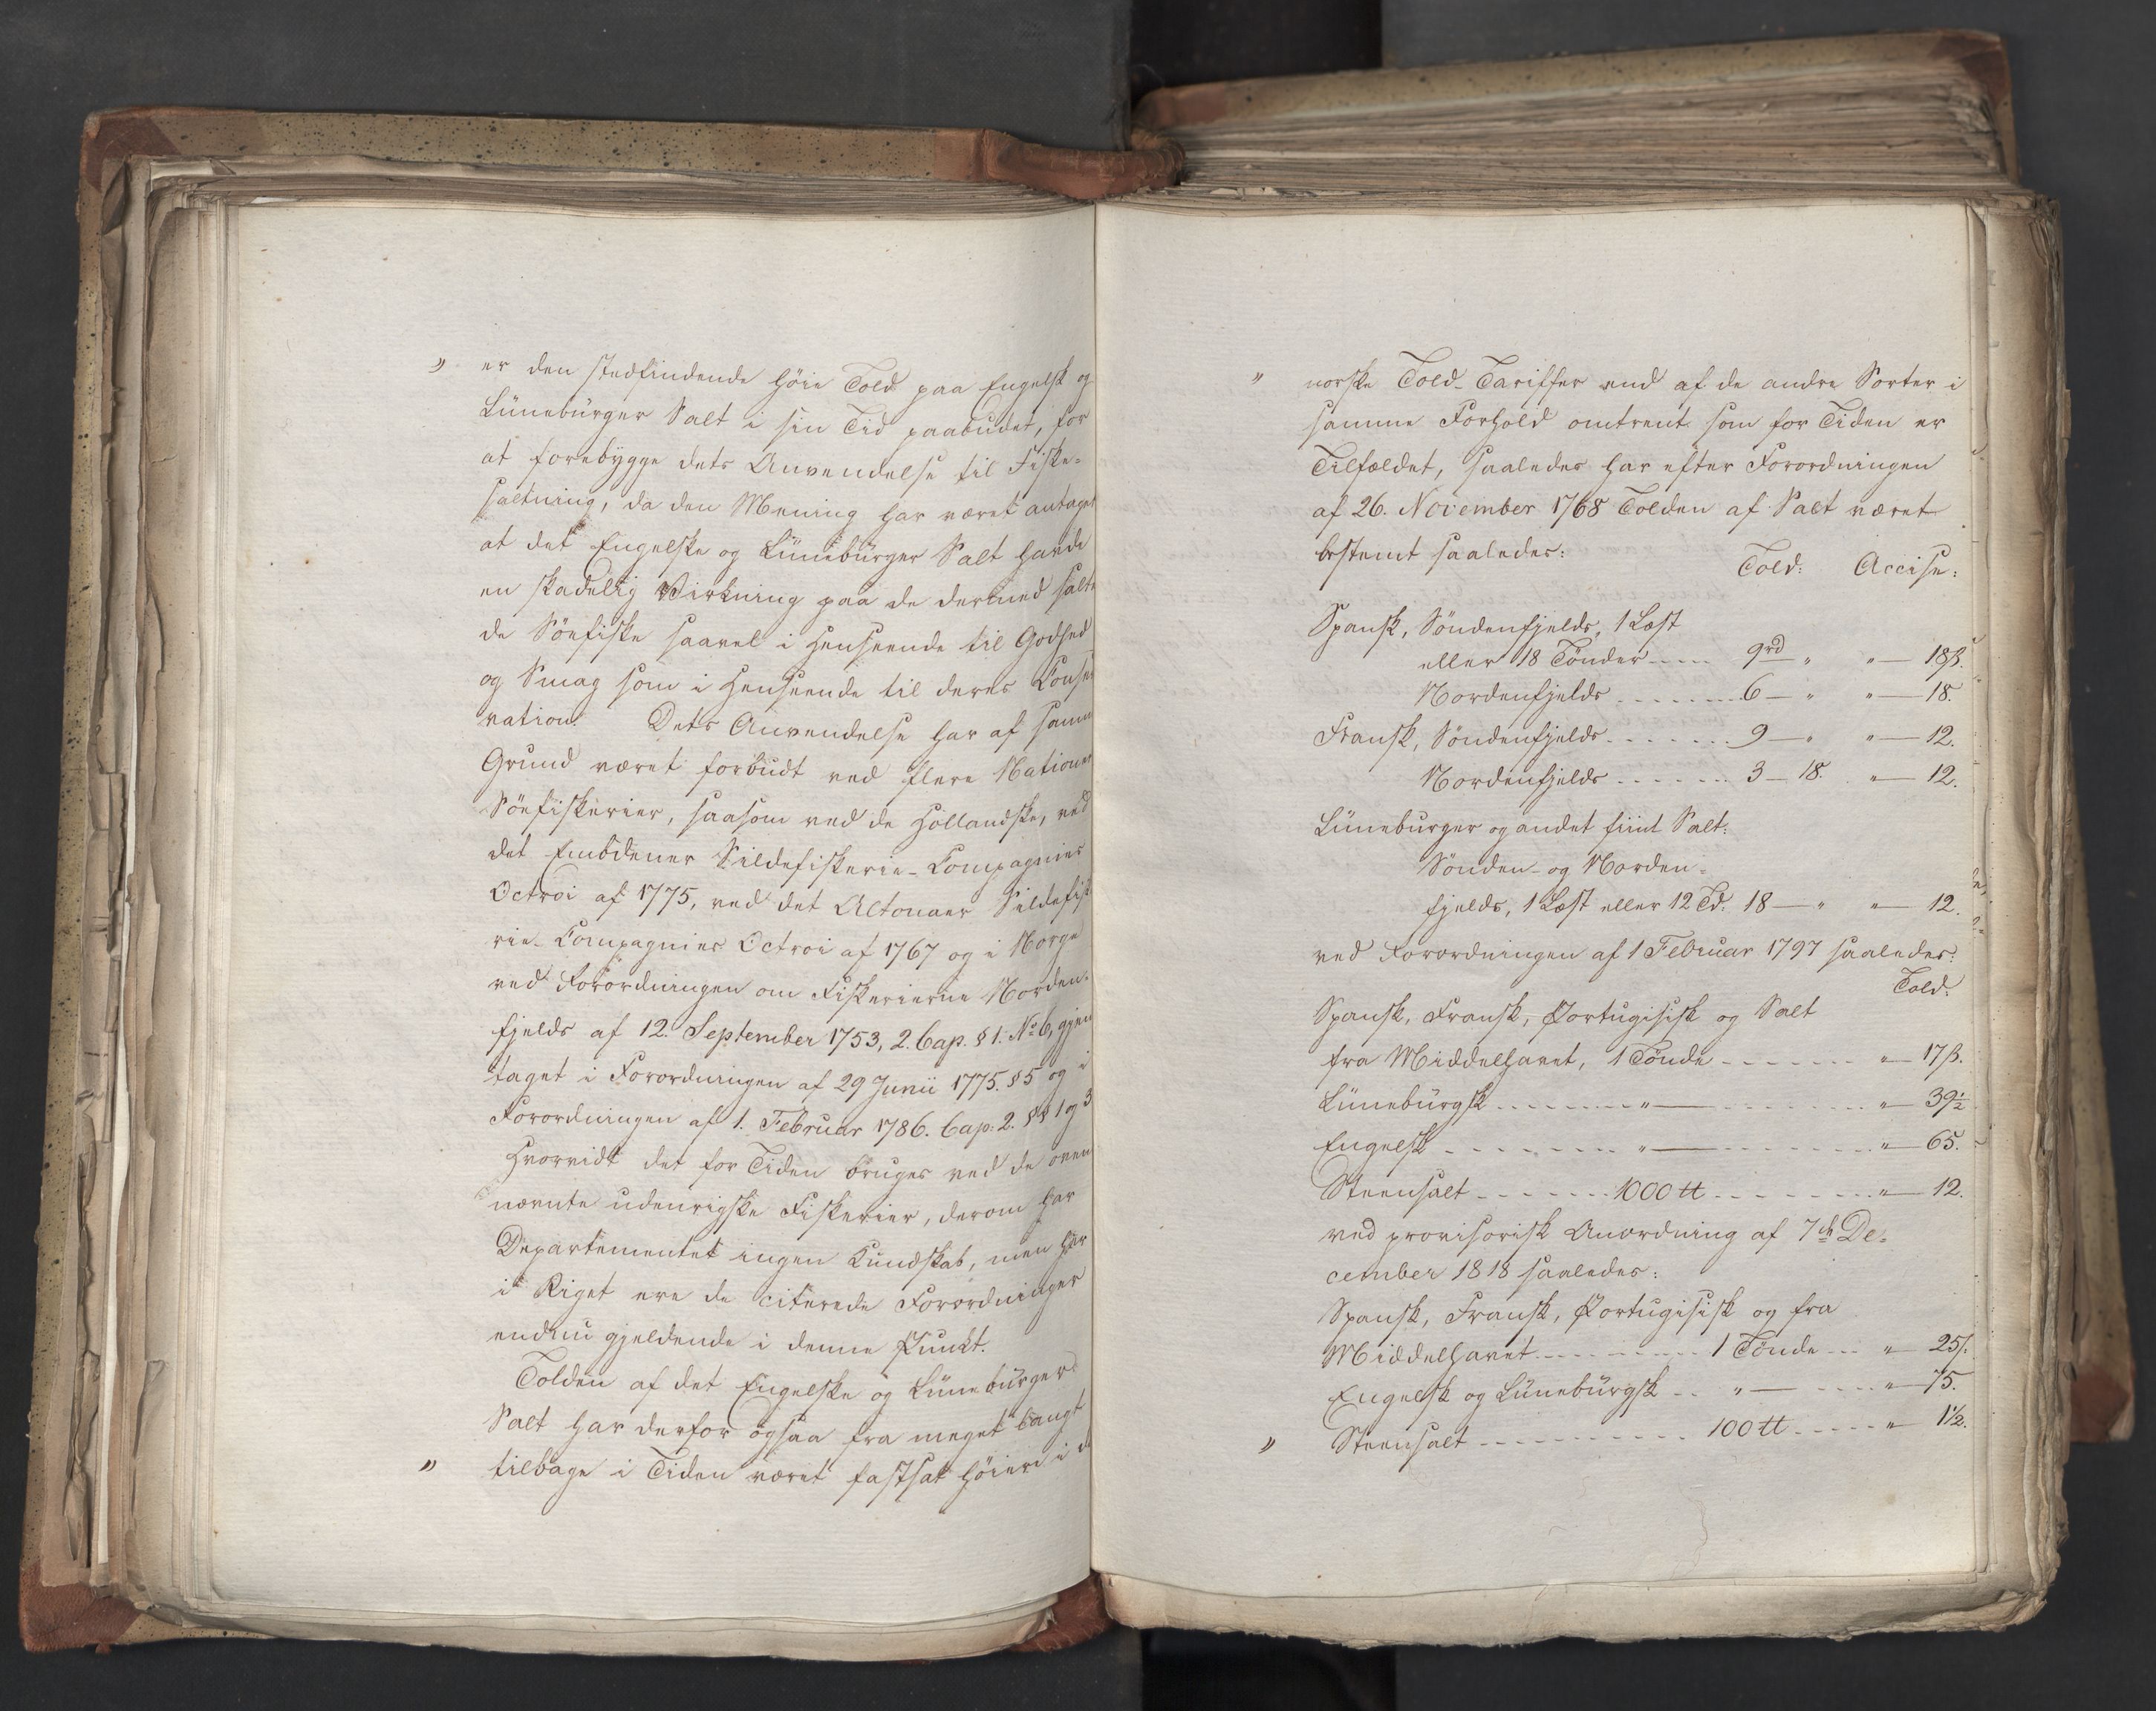 " er den stedfindende höie Told paa Engelsk og
Lüneburger Salt i sin Tid paabudet, for
at forebygge dets Anvendelse til Fiske-
saltning, da den Mening har været antaget
at det Engelske og Lüneburger Salt havde
en skadelig Virkning paa de dermed salte
de Söefiske saavel i Henseende til Godhed
og Smag som i Henseende til deres Conser
vation. Dets Anvendelse har af samme
Grund været forbudt ved flere Nationers
Söefiskerier, saasom ved de Hollandske, ved
det Embdener Sildefiskerie-Compagnies
Octroi af 1775, ved det Altonaer Sildefiske
rie-Compagnies Octroi af 1767 og i Norge
ved Forordningen om Fiskerierne Norden-
fjelds af 12. September 1753, 2. Cap. § 1. No 6, gjen
taget i Forordningen af 29 Junii 1775. § 5 og i
Forordningen af 1. Februar 1786. Cap. 2. §§ 1 og 3
Hvorvidt det for Tiden bruges ved de oven
nævnte udenrigske Fiskerier, derom har
Departementet ingen Kundskab, men her
i Riget ere de citerede Forordninger
endnu gjeldende i denne Punkt.
Tolden af det Engelske og Lüneburger
Salt har derfor ogsaa fra meget langt
" tilbage i Tiden været fastsat höiere i de
" norske Told-Tariffer end af de andre Sorter i
samme Forhold omtrent som for Tiden er
Tilfældet, saaledes har efter Forordningen
af 26. November 1768 Tolden af Salt været
bestemt saaledes:
Told: Accise:
Spansk, Söndenfjelds, 1 Læst
eller 18 Tönder ---- 9rd " " — 18ß.
Nordenfjelds ------- 6 — " " — 18.
Fransk, Söndenfjelds ------- 9 — " " — 12.
Nordenfjelds ------- 3 — 18. " — 12.
Lüneburger og andet fiint Salt:
Sönden- og Norden-
fjelds, 1 Læst eller 12 Td. 18 — " " — 12.
ved Forordningen af 1 Februar 1797 saaledes:
Told:
Spansk, Fransk, Portugisisk og Salt
fra Middelhavet, 1 Tönde ------- " — 17ß.
Lüneburgsk -------- " — -------- " — 39½
Engelsk -------- " — -------- " — 65.
Steensalt ------- 1000 ℔ -------- " — 12.
ved provisorisk Anordning af 7de De-
cember 1818 saaledes:
Spansk, Fransk, Portugisisk og fra
Middelhavet -------- 1 Tönde --- " — 25ß.
Engelsk og Lüneburgsk -- " — ---- " — 75.
" Steensalt ----------- 100 ℔ ----- " — 1½.